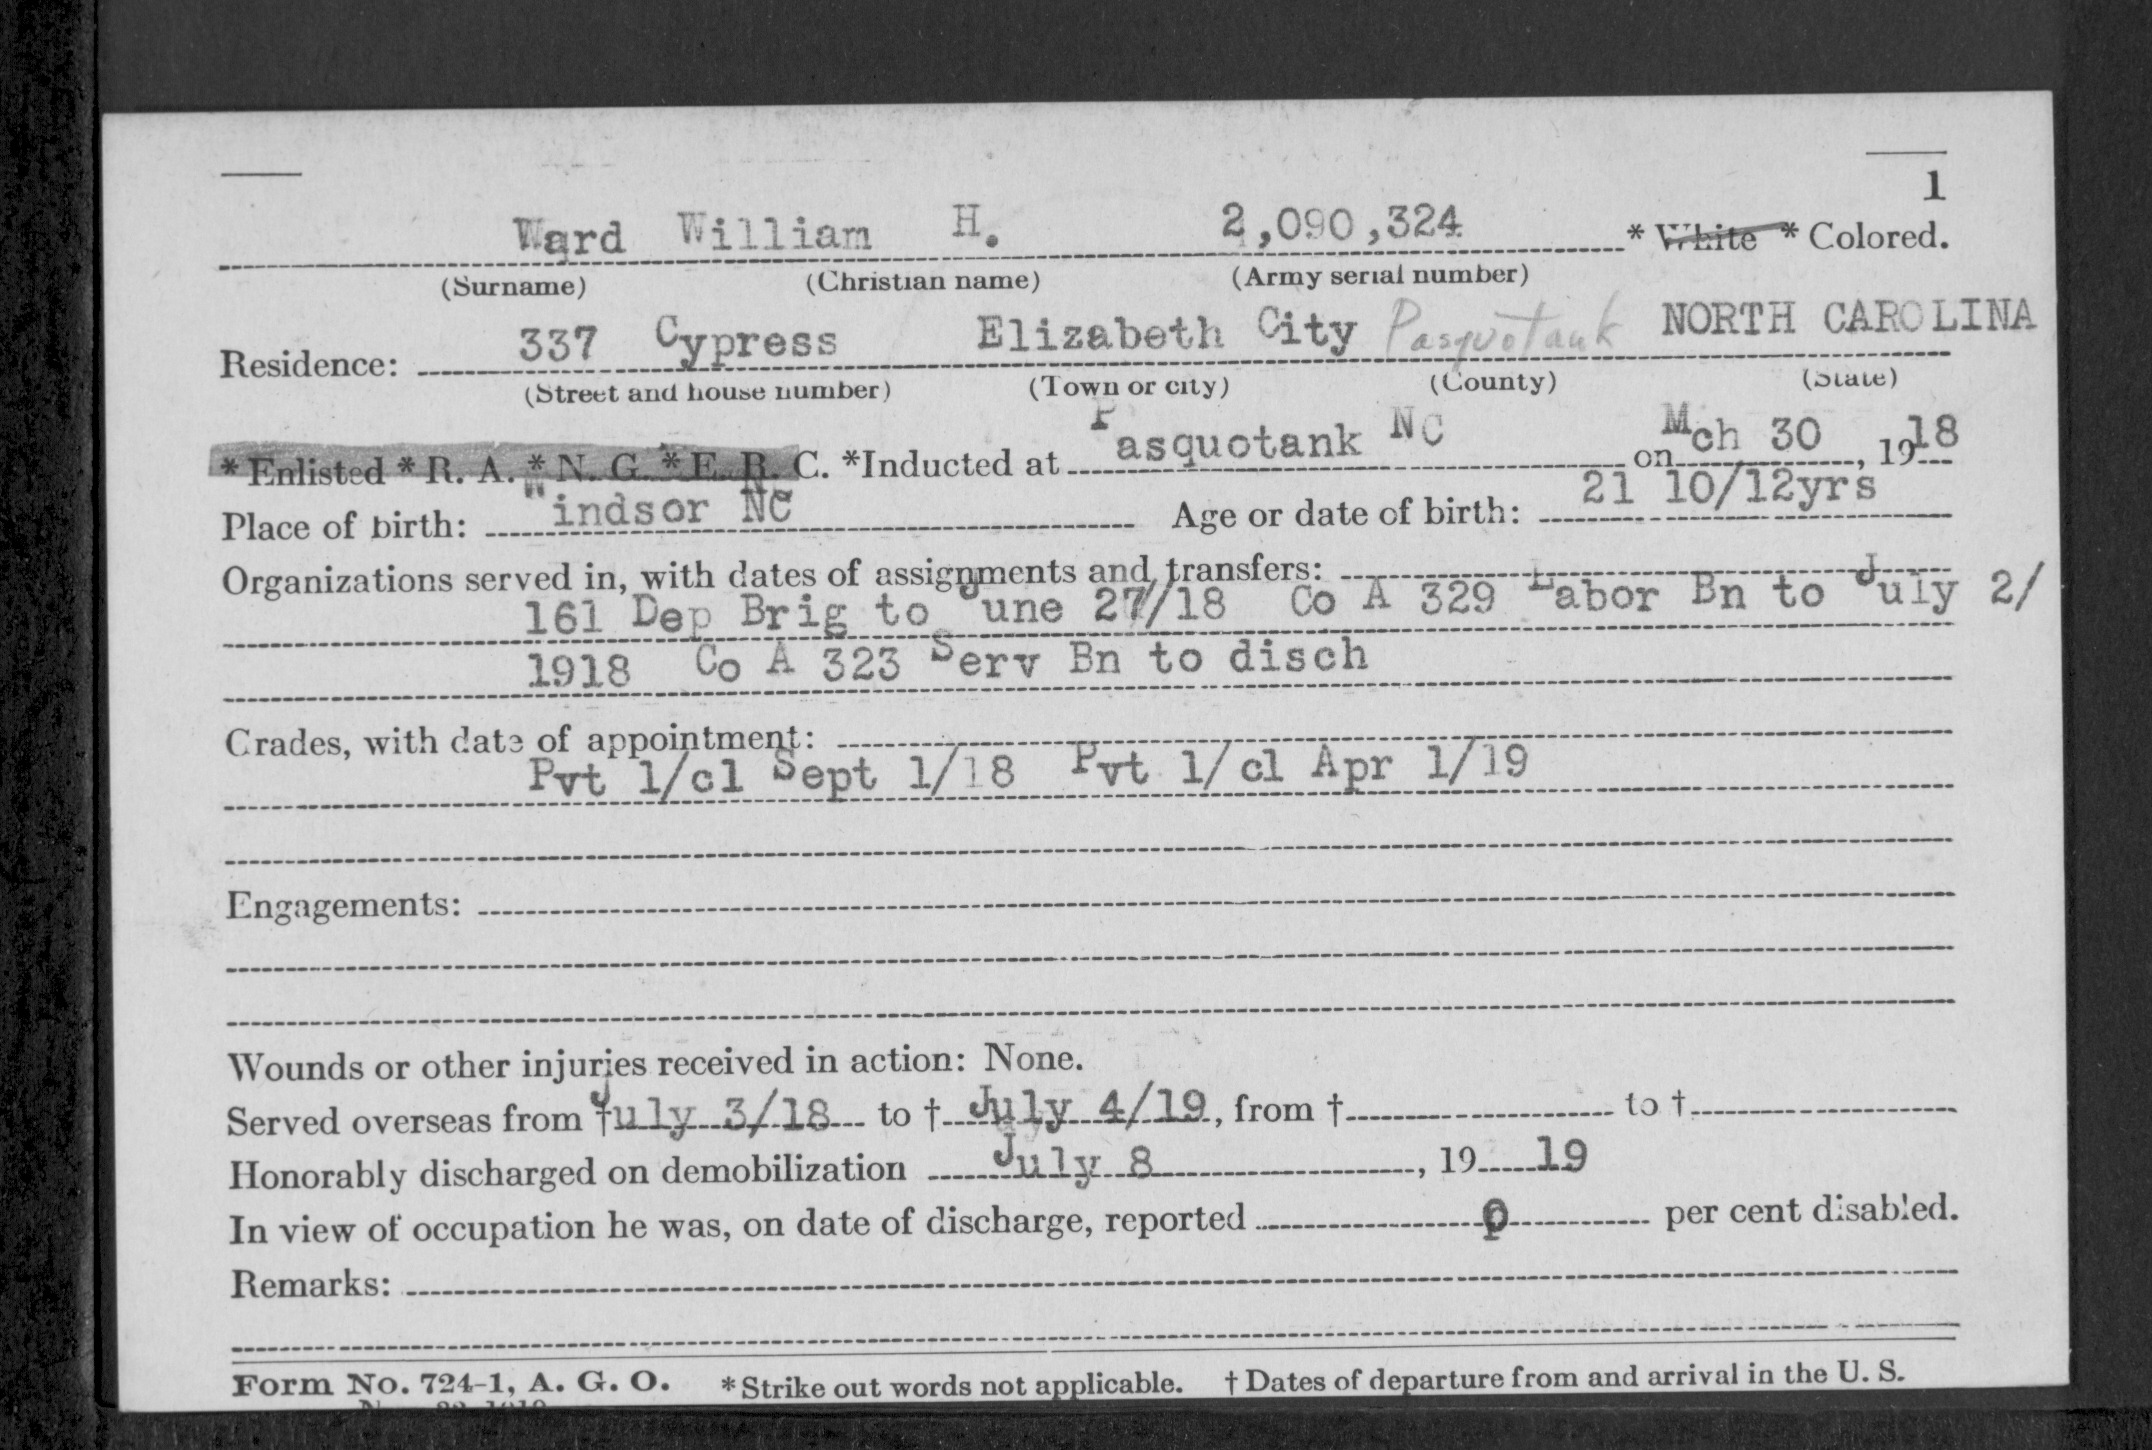 1
Ward William H. 2,090,324 * White * Colored.
(Surname) (Christian name) (Army serial number)
Residence: 337 Cypress Elizabeth City Pasquotank NORTH CAROLINA
(Street and house number) (Town or city) (County) (State)
*Enlisted *R. A. *N. G. *E. R. C. *Inducted at Pasquotank NC on Mch 30, 1918
Place of birth: Windsor NC Age or date of birth: 21 10/12yrs
Organizations served in, with dates of assignments and transfers:
161 Dep Brig to June 27/18 Co A 329 Labor Bn to July 2/
1918 Co A 323 Serv Bn to disch
Grades, with date of appointment:
Pvt 1/cl Sept 1/18 Pvt 1/cl Apr 1/19
Engagements:
Wounds or other injuries received in action: None.
Served overseas from † July 3/18 to † July 4/19, from † to †
Honorably discharged on demobilization July 8, 19 19
In view of occupation he was, on date of discharge, reported 0 per cent disabled.
Remarks:
Form No. 724-1, A. G. O. *Strike out words not applicable. † Dates of departure from and arrival in the U. S.